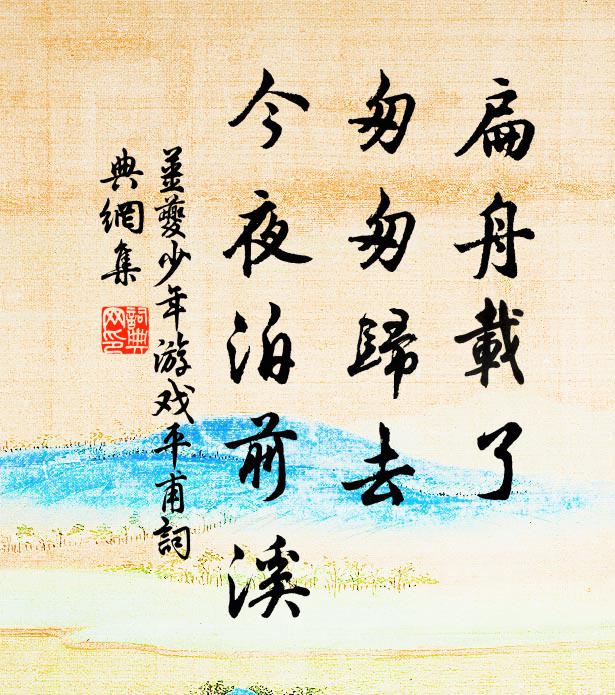 扁舟載了
匆匆歸去
今夜泊前溪
姜夔少年游戏平甫詞
典網集
詞典
网印